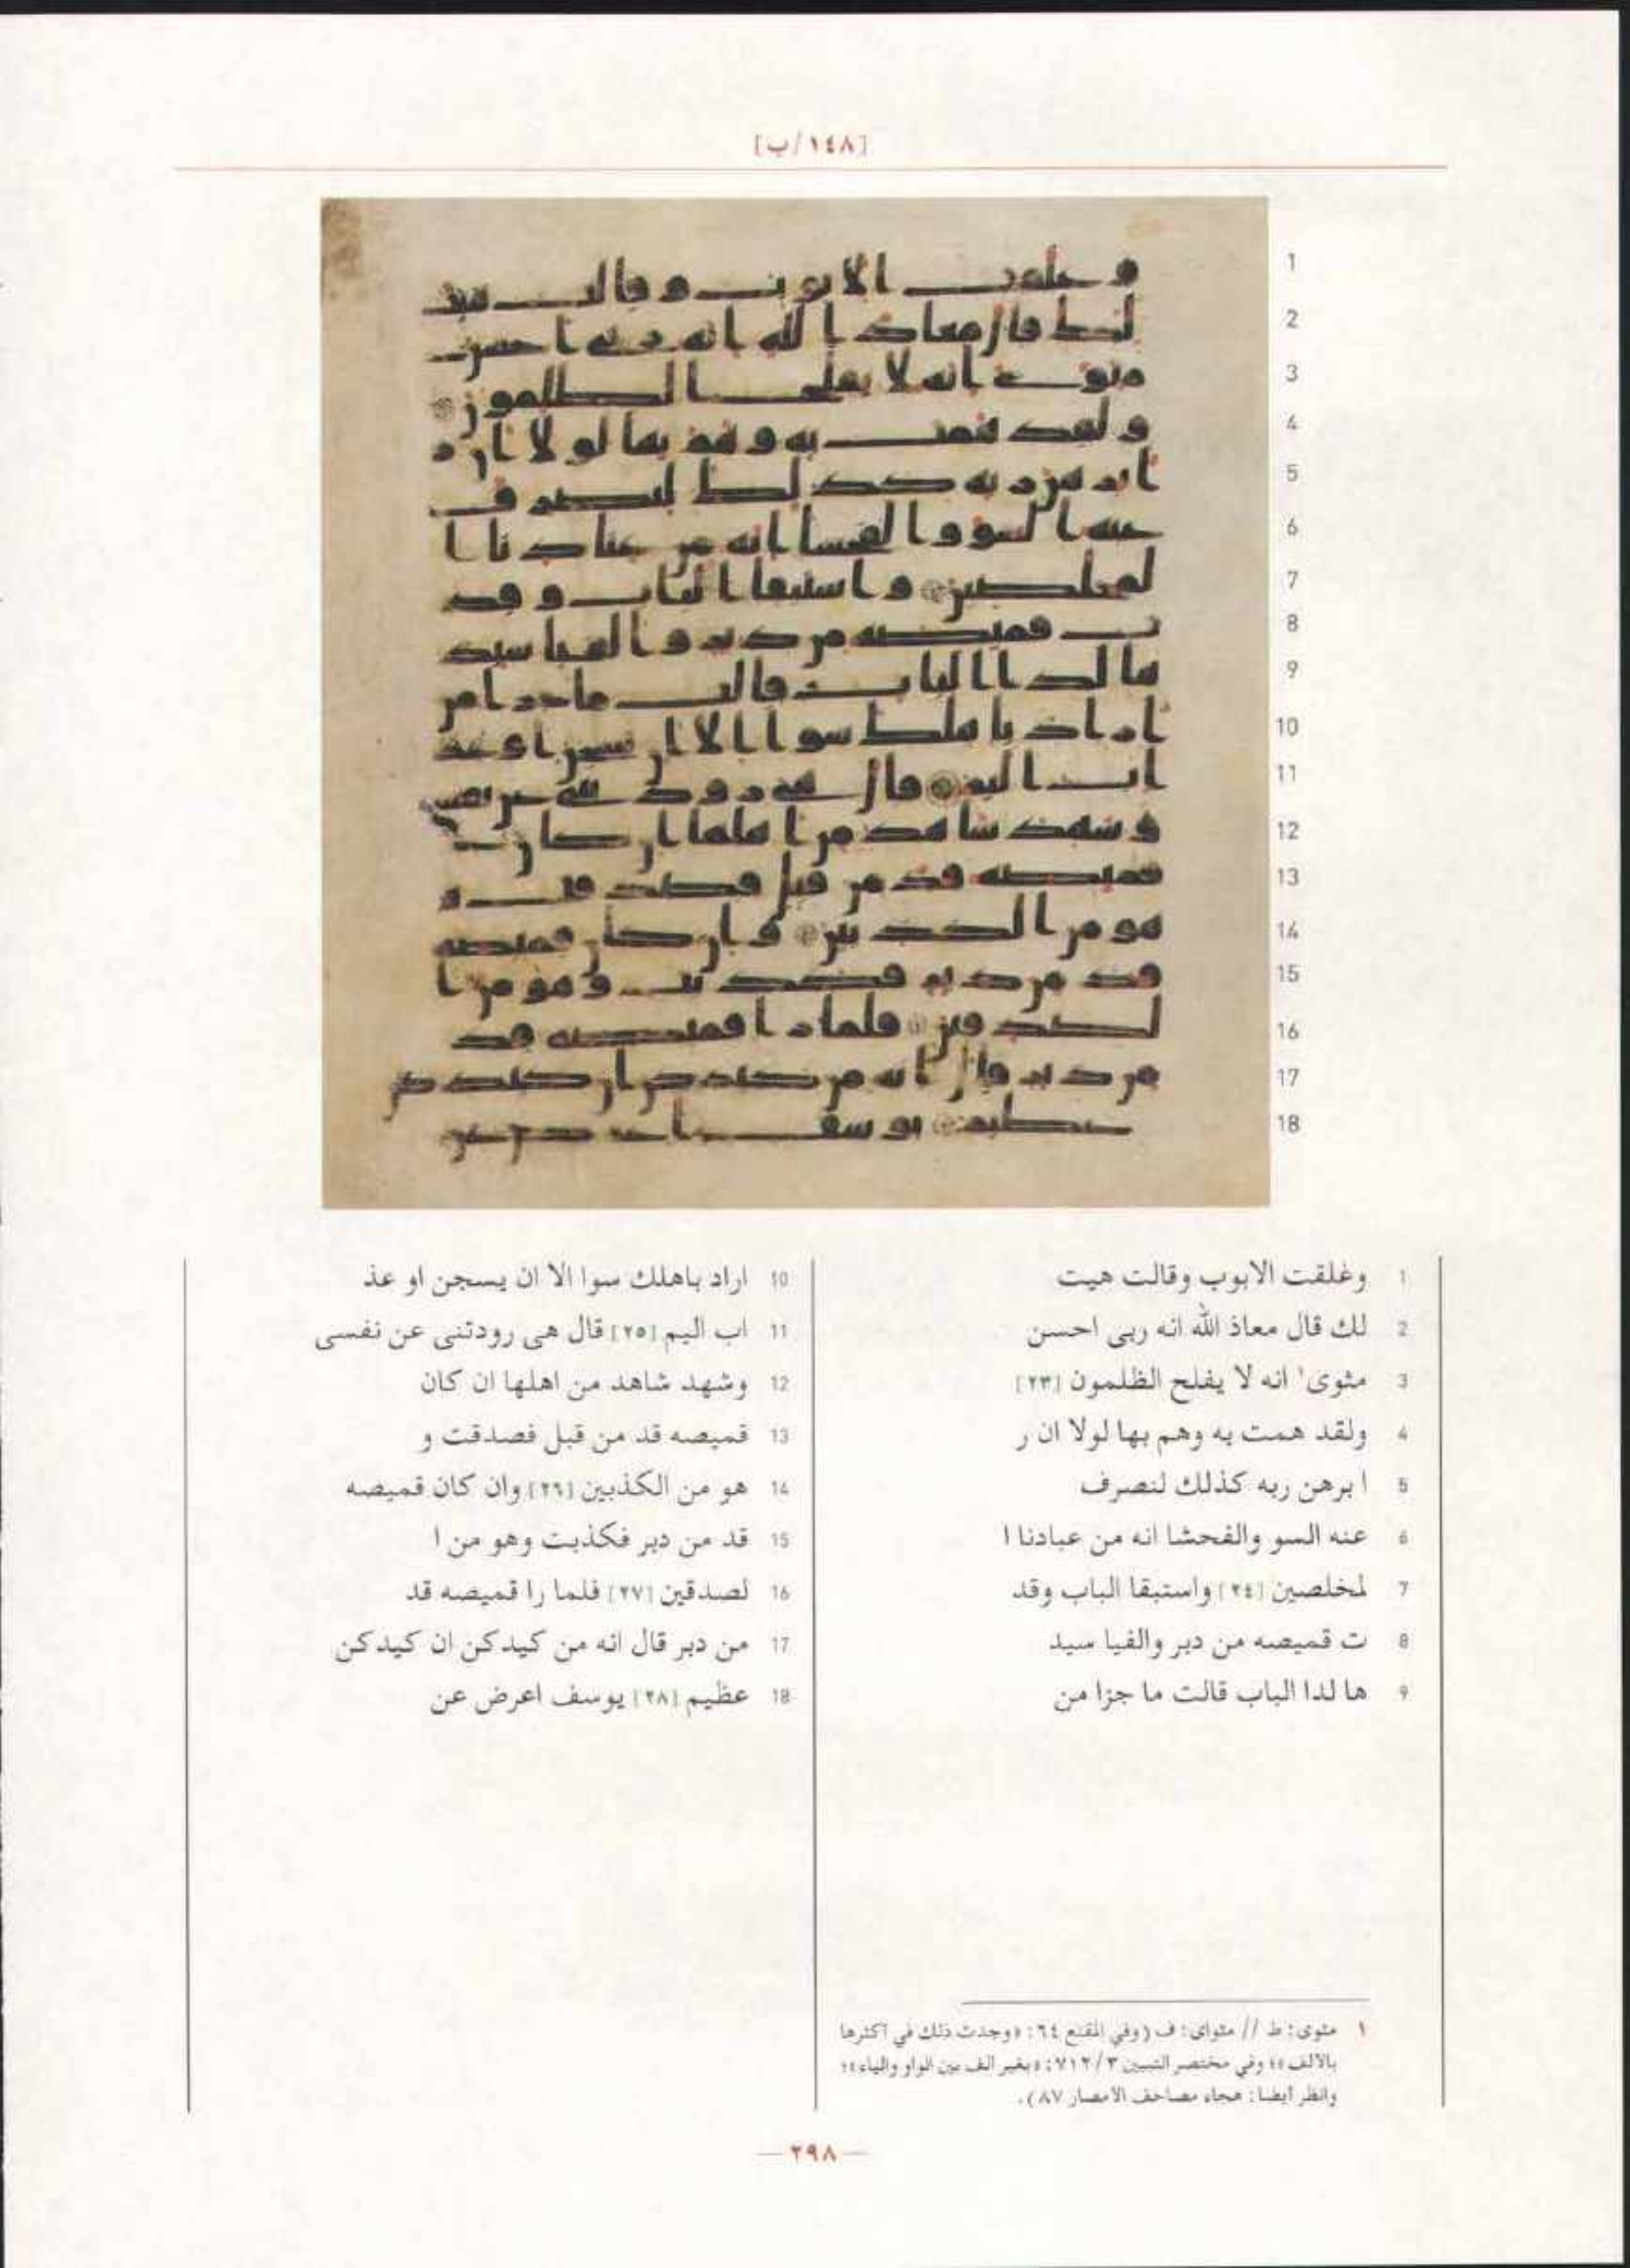 [١٤٨/ب]
1 وغلقت الابوب وقالت هيت
2 لك قال معاذ الله انه ربى احسن
3 مثوى¹ انه لا يفلح الظلمون [٢٣]
4 ولقد همت به وهم بها لولا ان ر
5 ا برهن ربه كذلك لنصرف
6 عنه السو والفحشا انه من عبادنا ا
7 لمخلصين [٢٤] واستبقا الباب وقد
8 ت قميصه من دبر والفيا سيد
9 ها لدا الباب قالت ما جزا من
10 اراد باهلك سوا الا ان يسجن او عذ
11 اب اليم [٢٥] قال هى رودتنى عن نفسى
12 وشهد شاهد من اهلها ان كان
13 قميصه قد من قبل فصدقت و
14 هو من الكذبين [٢٦] وان كان قميصه
15 قد من دبر فكذبت وهو من ا
16 لصدقين [٢٧] فلما را قميصه قد
17 من دبر قال انه من كيدكن ان كيدكن
18 عظيم [٢٨] يوسف اعرض عن
١ مثوى: ط // مثواى: ف (وفي المقنع ٦٤: «وجدت ذلك في اكثرها
بالالف»؛ وفي مختصر التبيين ٧١٢/٣: «بغير الف بين الواو والياء»؛
وانظر أيضا: هجاء مصاحف الامصار ٨٧).
— ٢٩٨ —